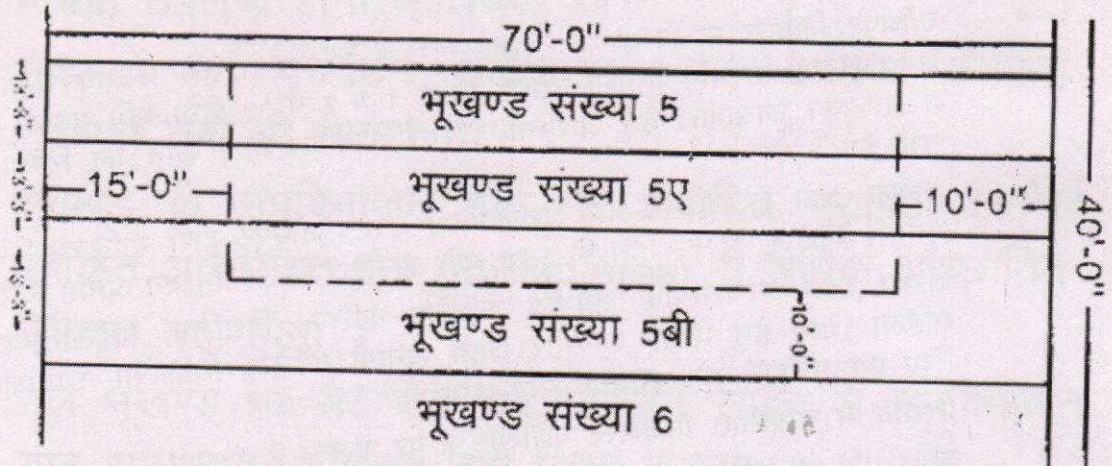 70'-0"
भूखण्ड संख्या 5
15'-0"
भूखण्ड संख्या 5ए
10'-0"
40'-0"
भूखण्ड संख्या 5बी
10'-0"
भूखण्ड संख्या 6